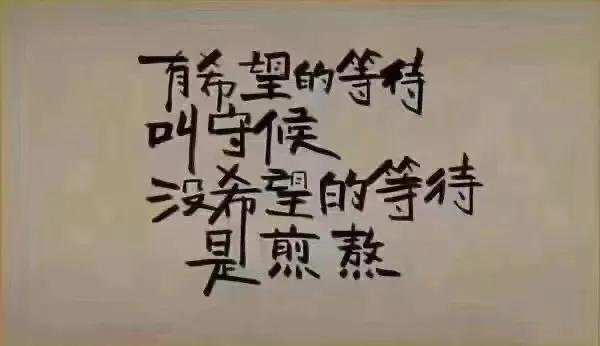 有希望的等待
叫守候
没希望的等待
是煎熬